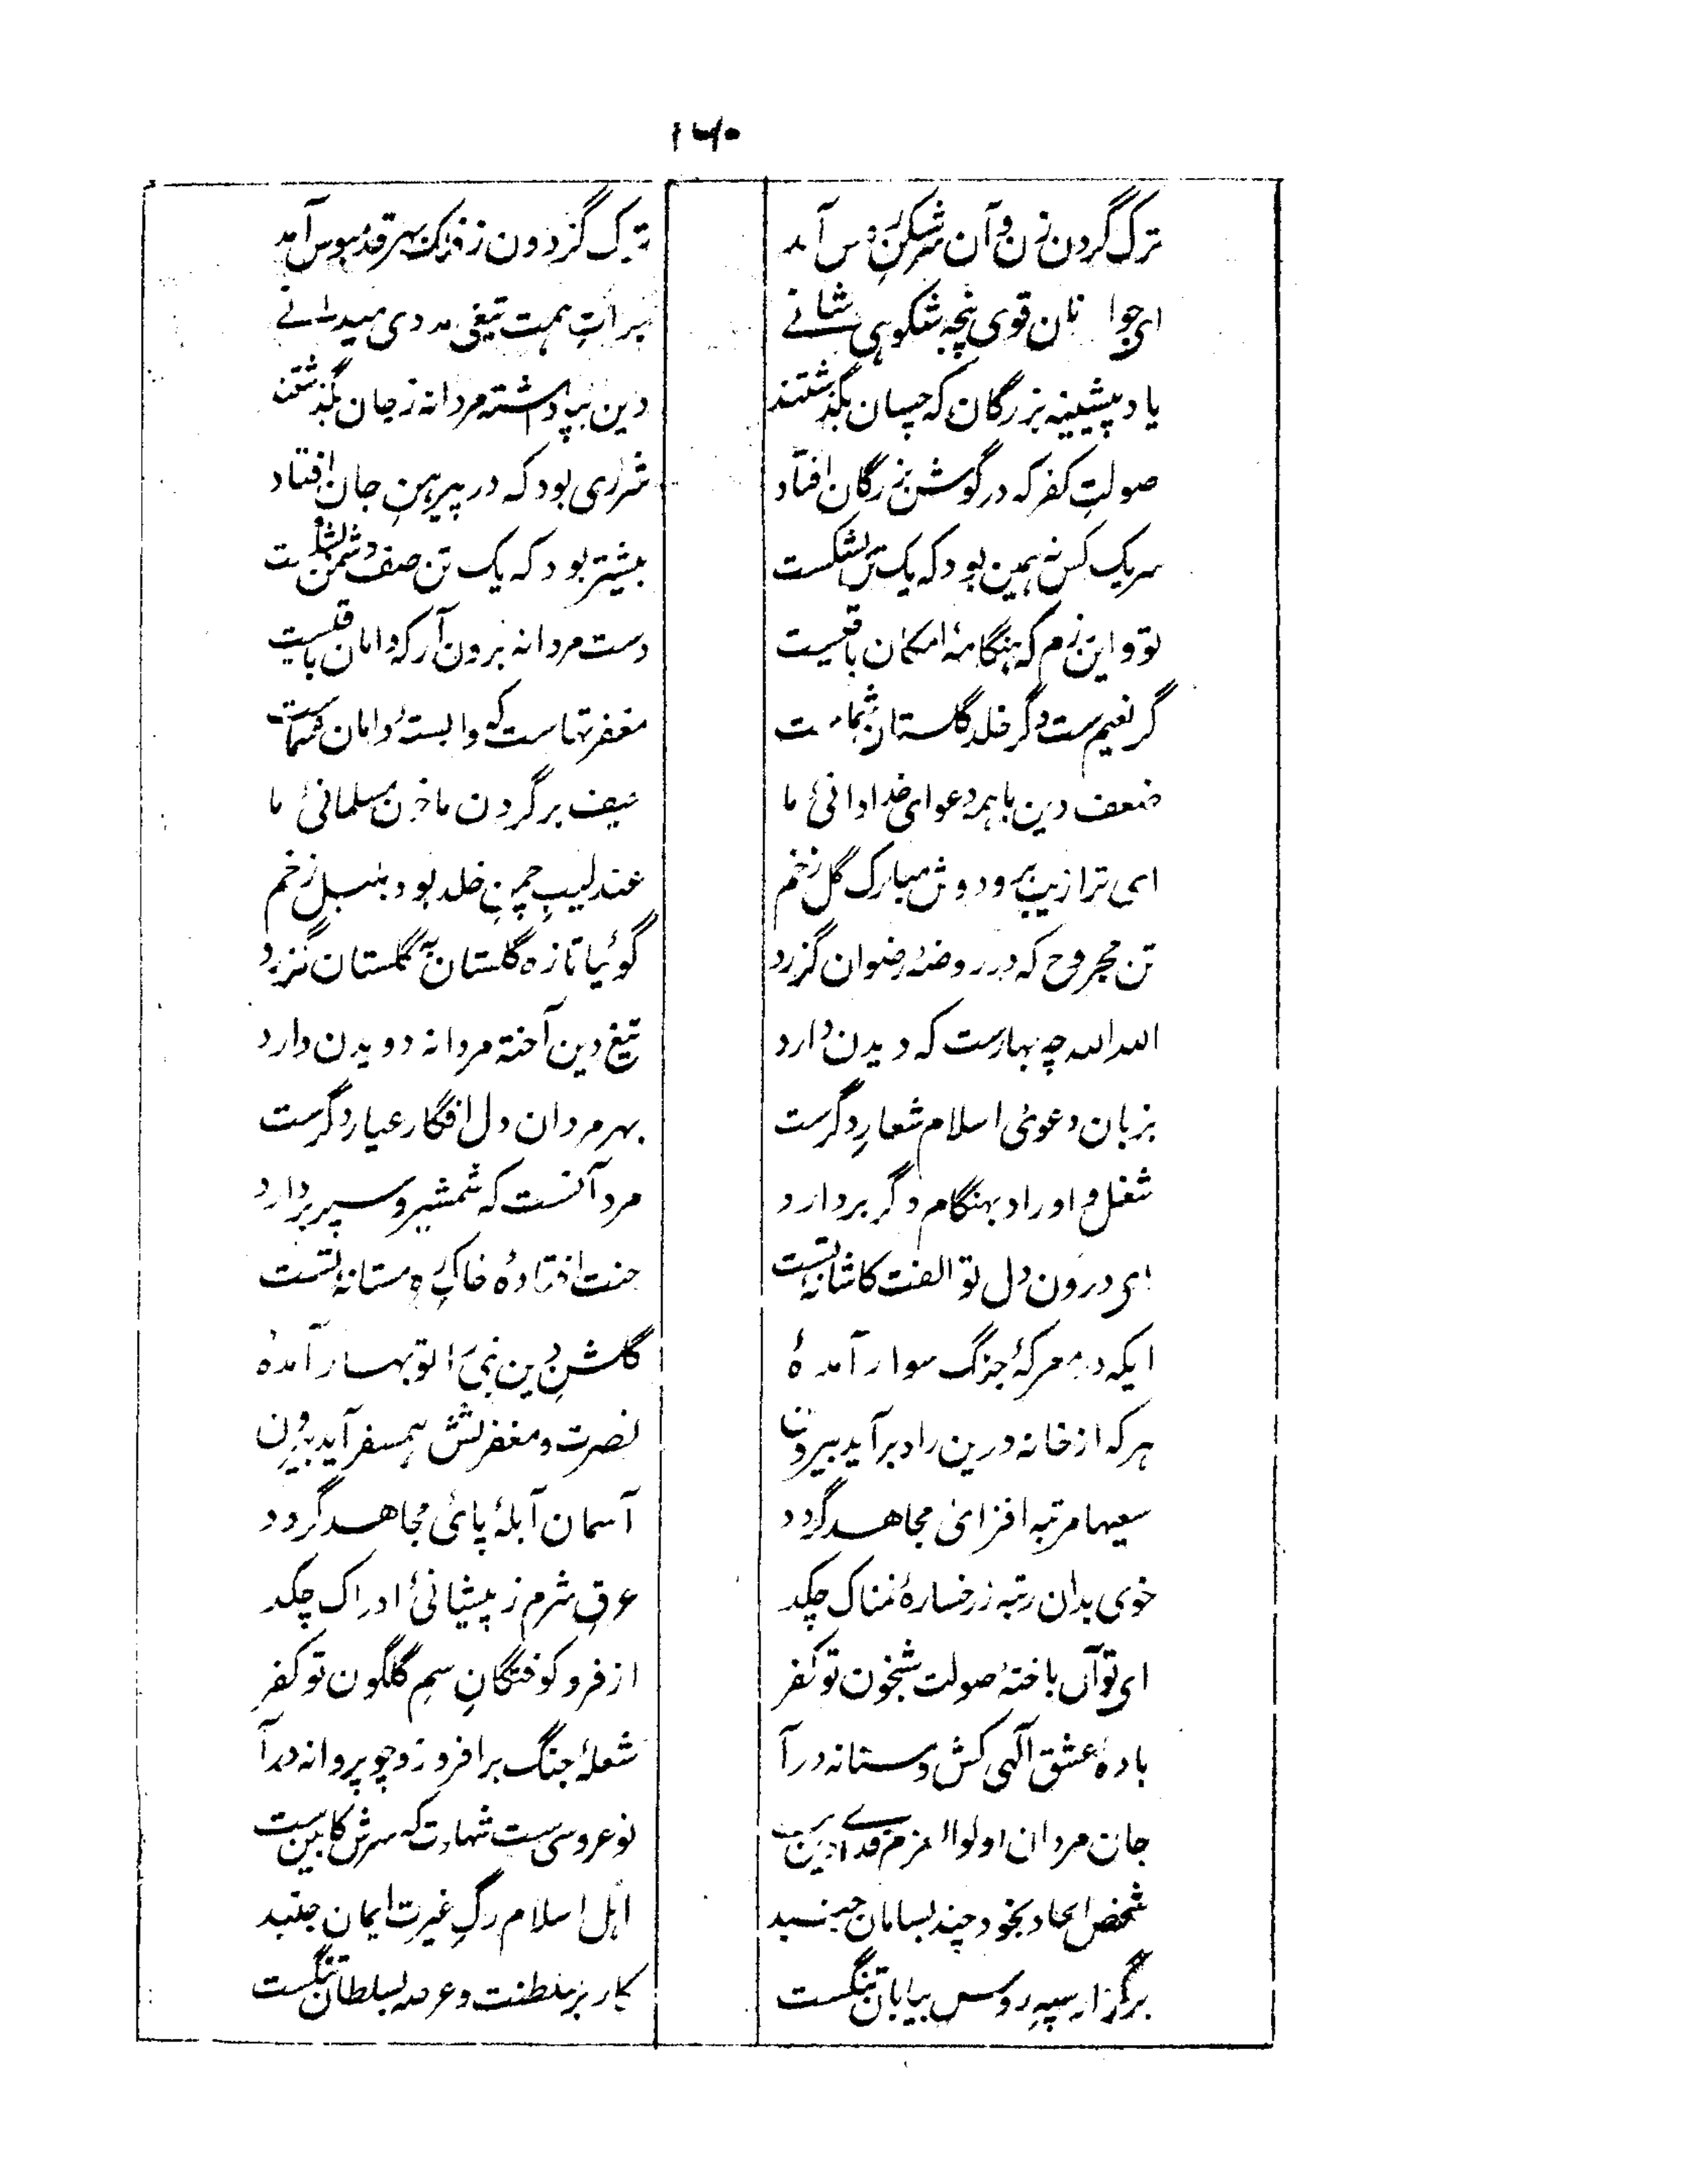 ۱۶۰
ترک گردن زن و آن سرشکن روس آمد
ترک گردون ز فلک بهر قدمبوس آمد
ای جوانان قوی پنجه شکوهی شانے
جرأت همت تیغی مددی میدانے
یاد پیشینه بزرگان که چسان بگذشتند
دین بپا داشته مردانه ز جان بگذشتند
صولت کفر که در گوش بزرگان افتاد
شرری بود که در پیرهن جان افتاد
سر یک کس نه همین بود که یک تن بشکست
بیشتر بود که یک تن صف دشمن بشکست
تو و این بزم که هنگامهٔ امکان باقیست
دست مردانه برون آر که دامان باقیست
گر نعیم ست وگر خلد گلستان شماست
مغفرتهاست که وابستهٔ دامان شماست
ضعف دین با همه دعوای خدادانیٔ ما
حیف برگردن ما خون مسلمانیٔ ما
ای ترا زیب بر و دوش مبارک گل زخم
عندلیب چمن خلد بود بلبل زخم
تن مجروح که در روضهٔ رضوان گزرد
گوئیا تازه گلستان به گلستان گزرد
الله الله چه بهارست که دیدن دارد
تیغ دین آخته مردانه دویدن دارد
بزبان دعویٔ اسلام شعار دگرست
بهر مردان دل افگار عیار دگرست
شغل و اوراد بهنگام دگر بردارد
مرد آنست که شمشیر و سپر بردارد
ای درون دل تو الفت کاشانه تست
جنت افتادهٔ خاک ره مستانه تست
ایکه در معرکهٔ جنگ سوار آمدهٔ
گلشن دین نبی را تو بهار آمدهٔ
هر که از خانه درین راه برآید بیرون
نصرت و مغفرتش همسفر آید بیرون
سعیها مرتبه افزائ مجاهد گردد
آسمان آبلهٔ پائ مجاهد گردد
خوی بدان رتبه ز رخسارهٔ نمناک چکد
عرق شرم ز پیشانیٔ ادراک چکد
ای توآں باختهٔ صولت شبخون تو کفر
از فرو کوفتگان سم گلگون تو کفر
بادهٔ عشق آلهی کش و مستانه درآ
شعلهٔ جنگ برافروز و چو پروانه درآ
جان مردان اولوالعزم فداے دین ست
نوعروسی ست شهادت که سرش کابین ست
شخص الحاد بخود چند بسامان جنبد
اهل اسلام رگ غیرت ایمان جنبد
برگزار سپه روس بیابان تنگست
کار بر سلطنت و عرصه بسلطان تنگست